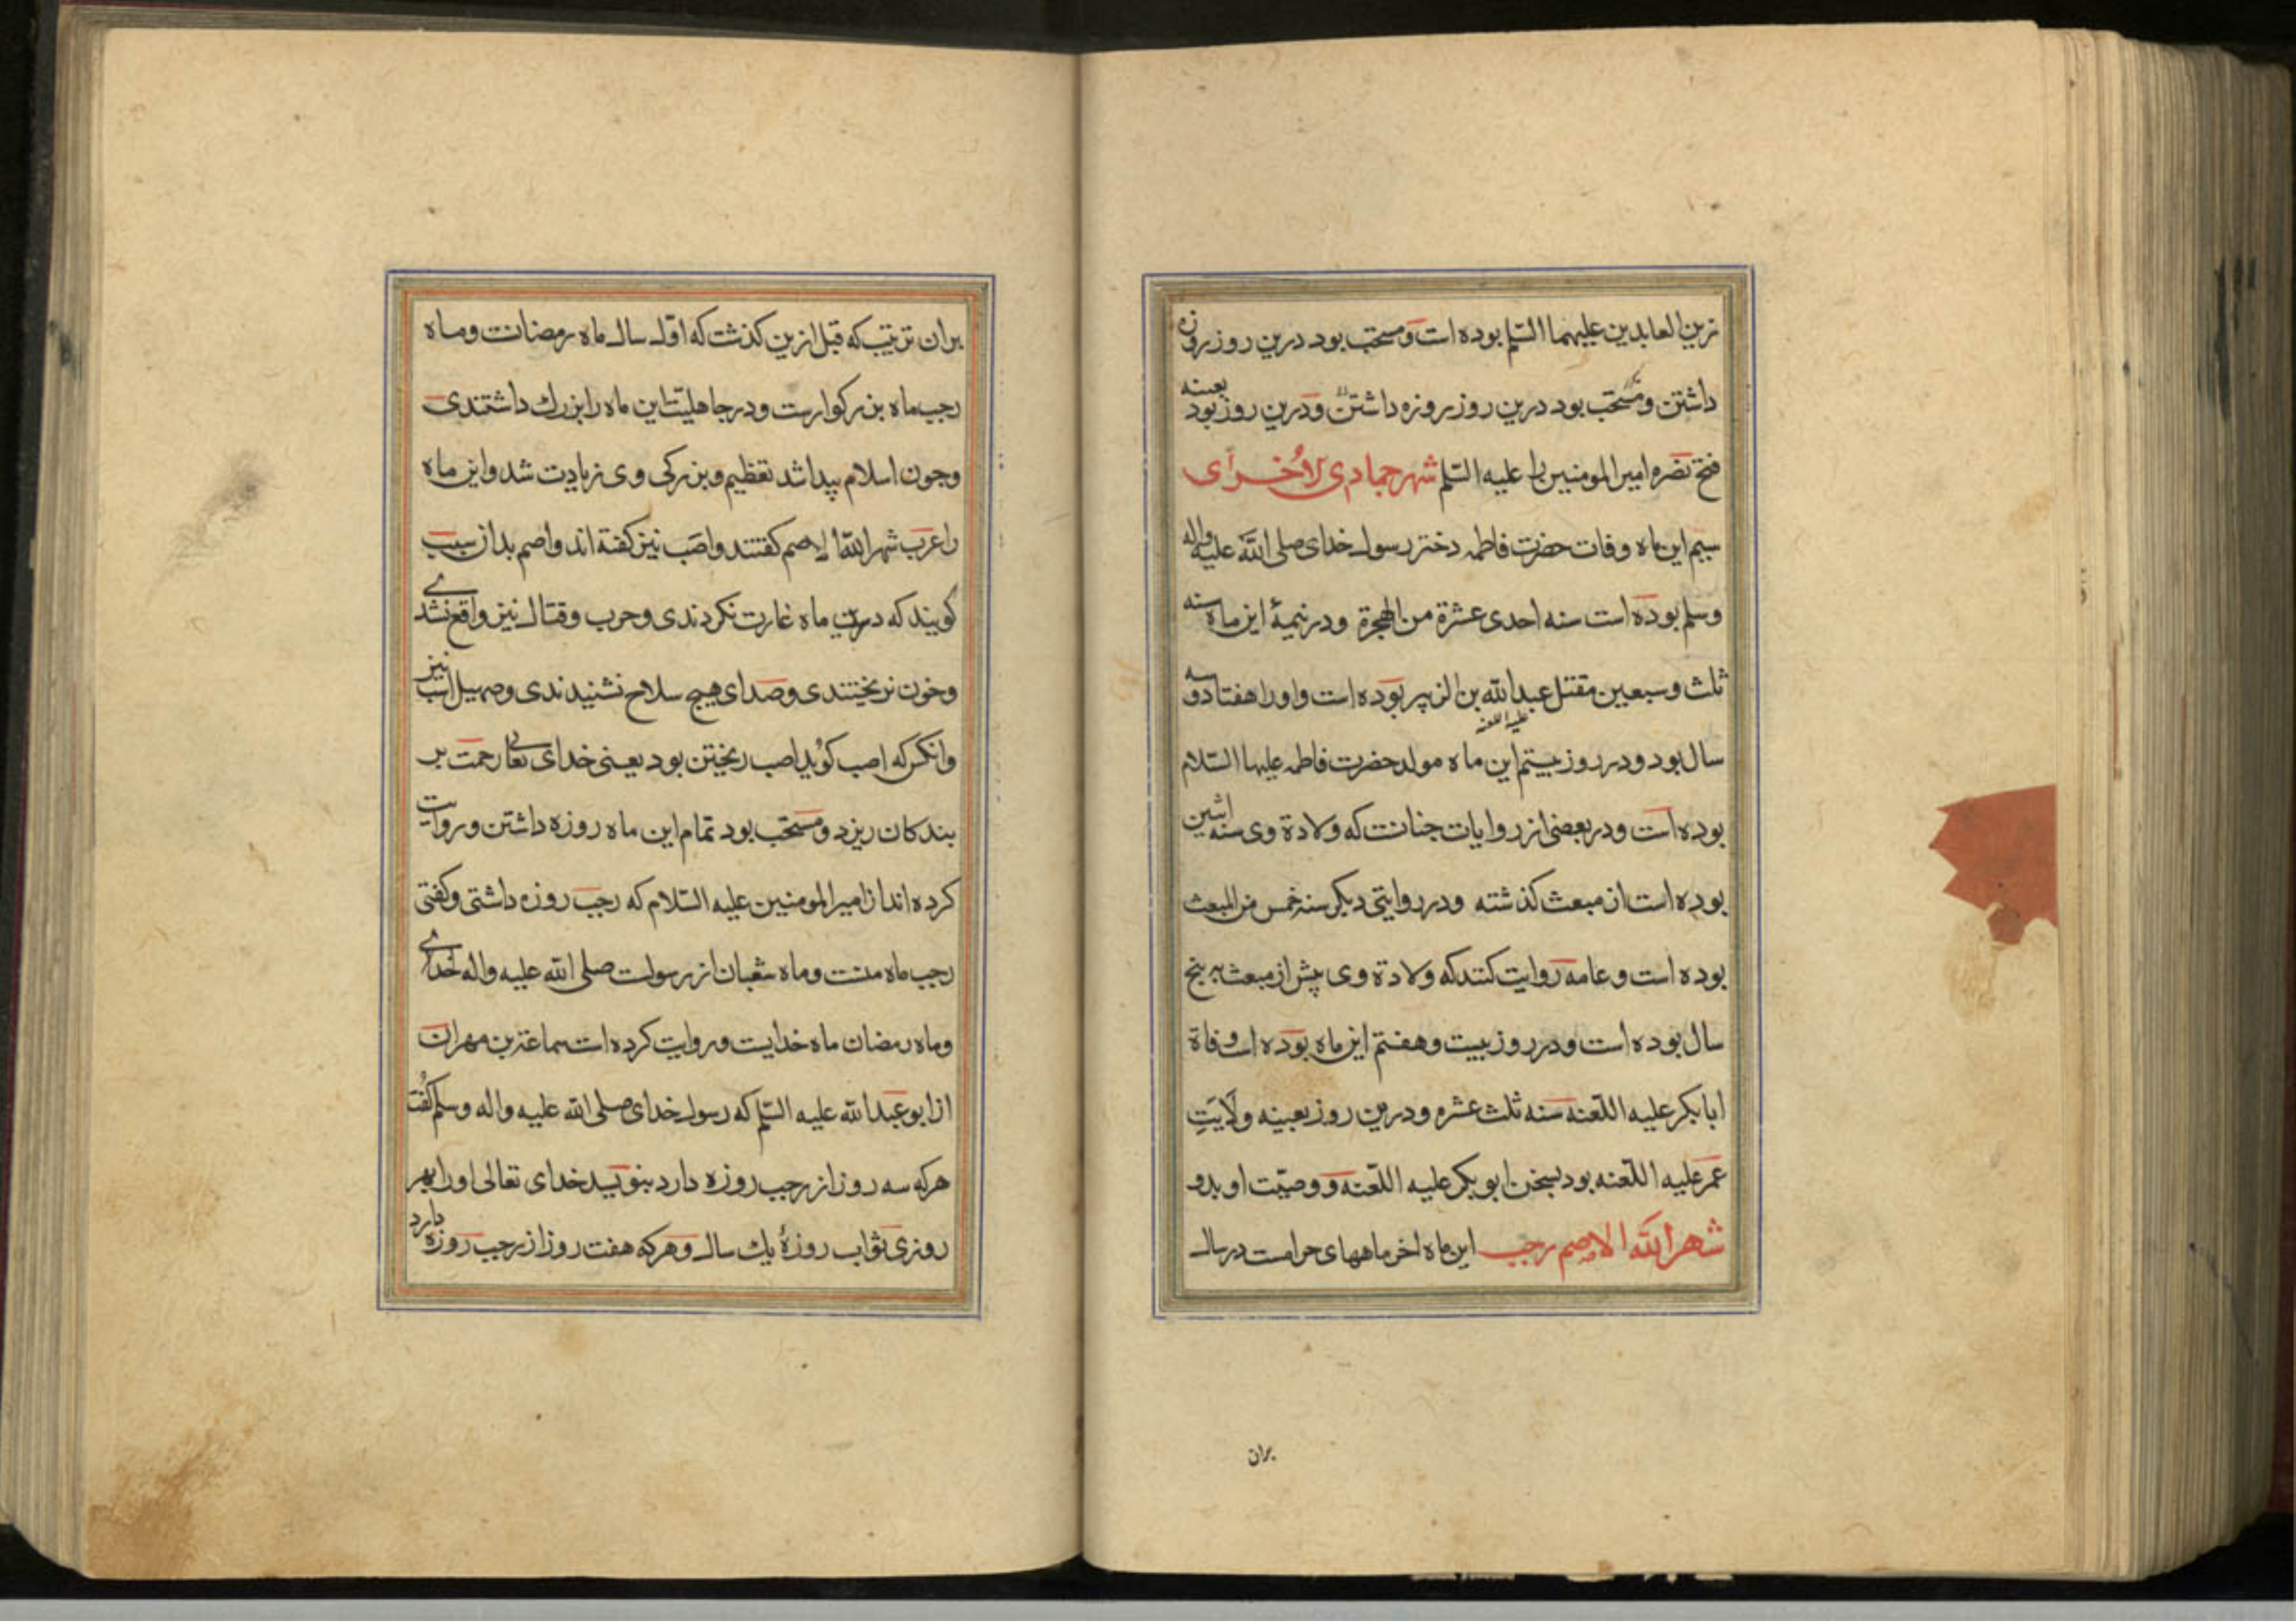 زین العابدین علیهما السّلم بوده است و مستحب بود درین روز روزه
داشتن و مستحب بود درین روز روزه داشتن و درین روز بود بعینه
فتح بصره امیر المومنین را علیه السّلم شهر جمادی الاُخرای
سیم این ماه وفات حضرت فاطمه دختر رسول خدای صلی الله علیه واله
وسلم بوده است سنه احدی عشرة من الهجرة و در نیمۀ این ماه سنه
ثلث و سبعین مقتل عبدالله بن الزبیر بوده است و او را هفتاد و سه
سال بود و در روز بیستم این ماه مولد حضرت فاطمه علیها السّلام
بوده است و در بعضی از روایات چنانست که ولادة وی سنه اثنین
بوده است از مبعث کذشته و در روایتی دیکر سنه خمس من المبعث
بوده است و عامه روایت کنند که ولادة وی پیش از مبعث به پنج
سال بوده است و در روز بیست و هفتم این ماه بوده است وفاة
ابابکر علیه اللّعنه سنه ثلث عشره و درین روز بعینه ولایَتِ
عمر علیه اللّعنه بود بسخن ابوبکر علیه اللّعنه و وصیّت او بدو
شهر الله الاصم رجب این ماه اخر ماههای حرامست در سال
بران
بران ترتیب که قبل ازین کذشت که اوّل سال ماه رمضانست و ماه
رجب ماه بزرکوارست و در جاهلیّت این ماه را بزرك داشتندی
وچون اسلام پیدا شد تعظیم و بزرکی وی زیادت شد و این ماه
را عرب شهر الله الاصم کفتند و اصَب نیز کفته اند و اصم بدان سبب
کویند که درین ماه غارت نکردندی و حرب و قتال نیز واقع نشدی
و خون نریختندی و صدای هیچ سلاح نشنیدندی و صهیل اسب نیز
وانکس که اصب کوید اصب ریختن بود یعنی خدای تعالی رحمت بر
بندکان ریزد و مستحب بود تمام این ماه روزه داشتن و روایت
کرده اند از امیر المومنین علیه السّلام که رجب روزه داشتی و کفتی
رجب ماه منست و ماه شعبان از رسولت صلی الله علیه واله خدای
و ماه رمضان ماه خدایست و روایت کرده است سماعة بن مهران
از ابوعبدالله علیه السّلم که رسول خدای صلی الله علیه واله وسلم کفُت
هرکه سه روز از رجب روزه دارد بنویسد خدای تعالی او را بهر
روزی ثواب روزۀ یك سال و هرکه هفت روز از رجب روزه دارد